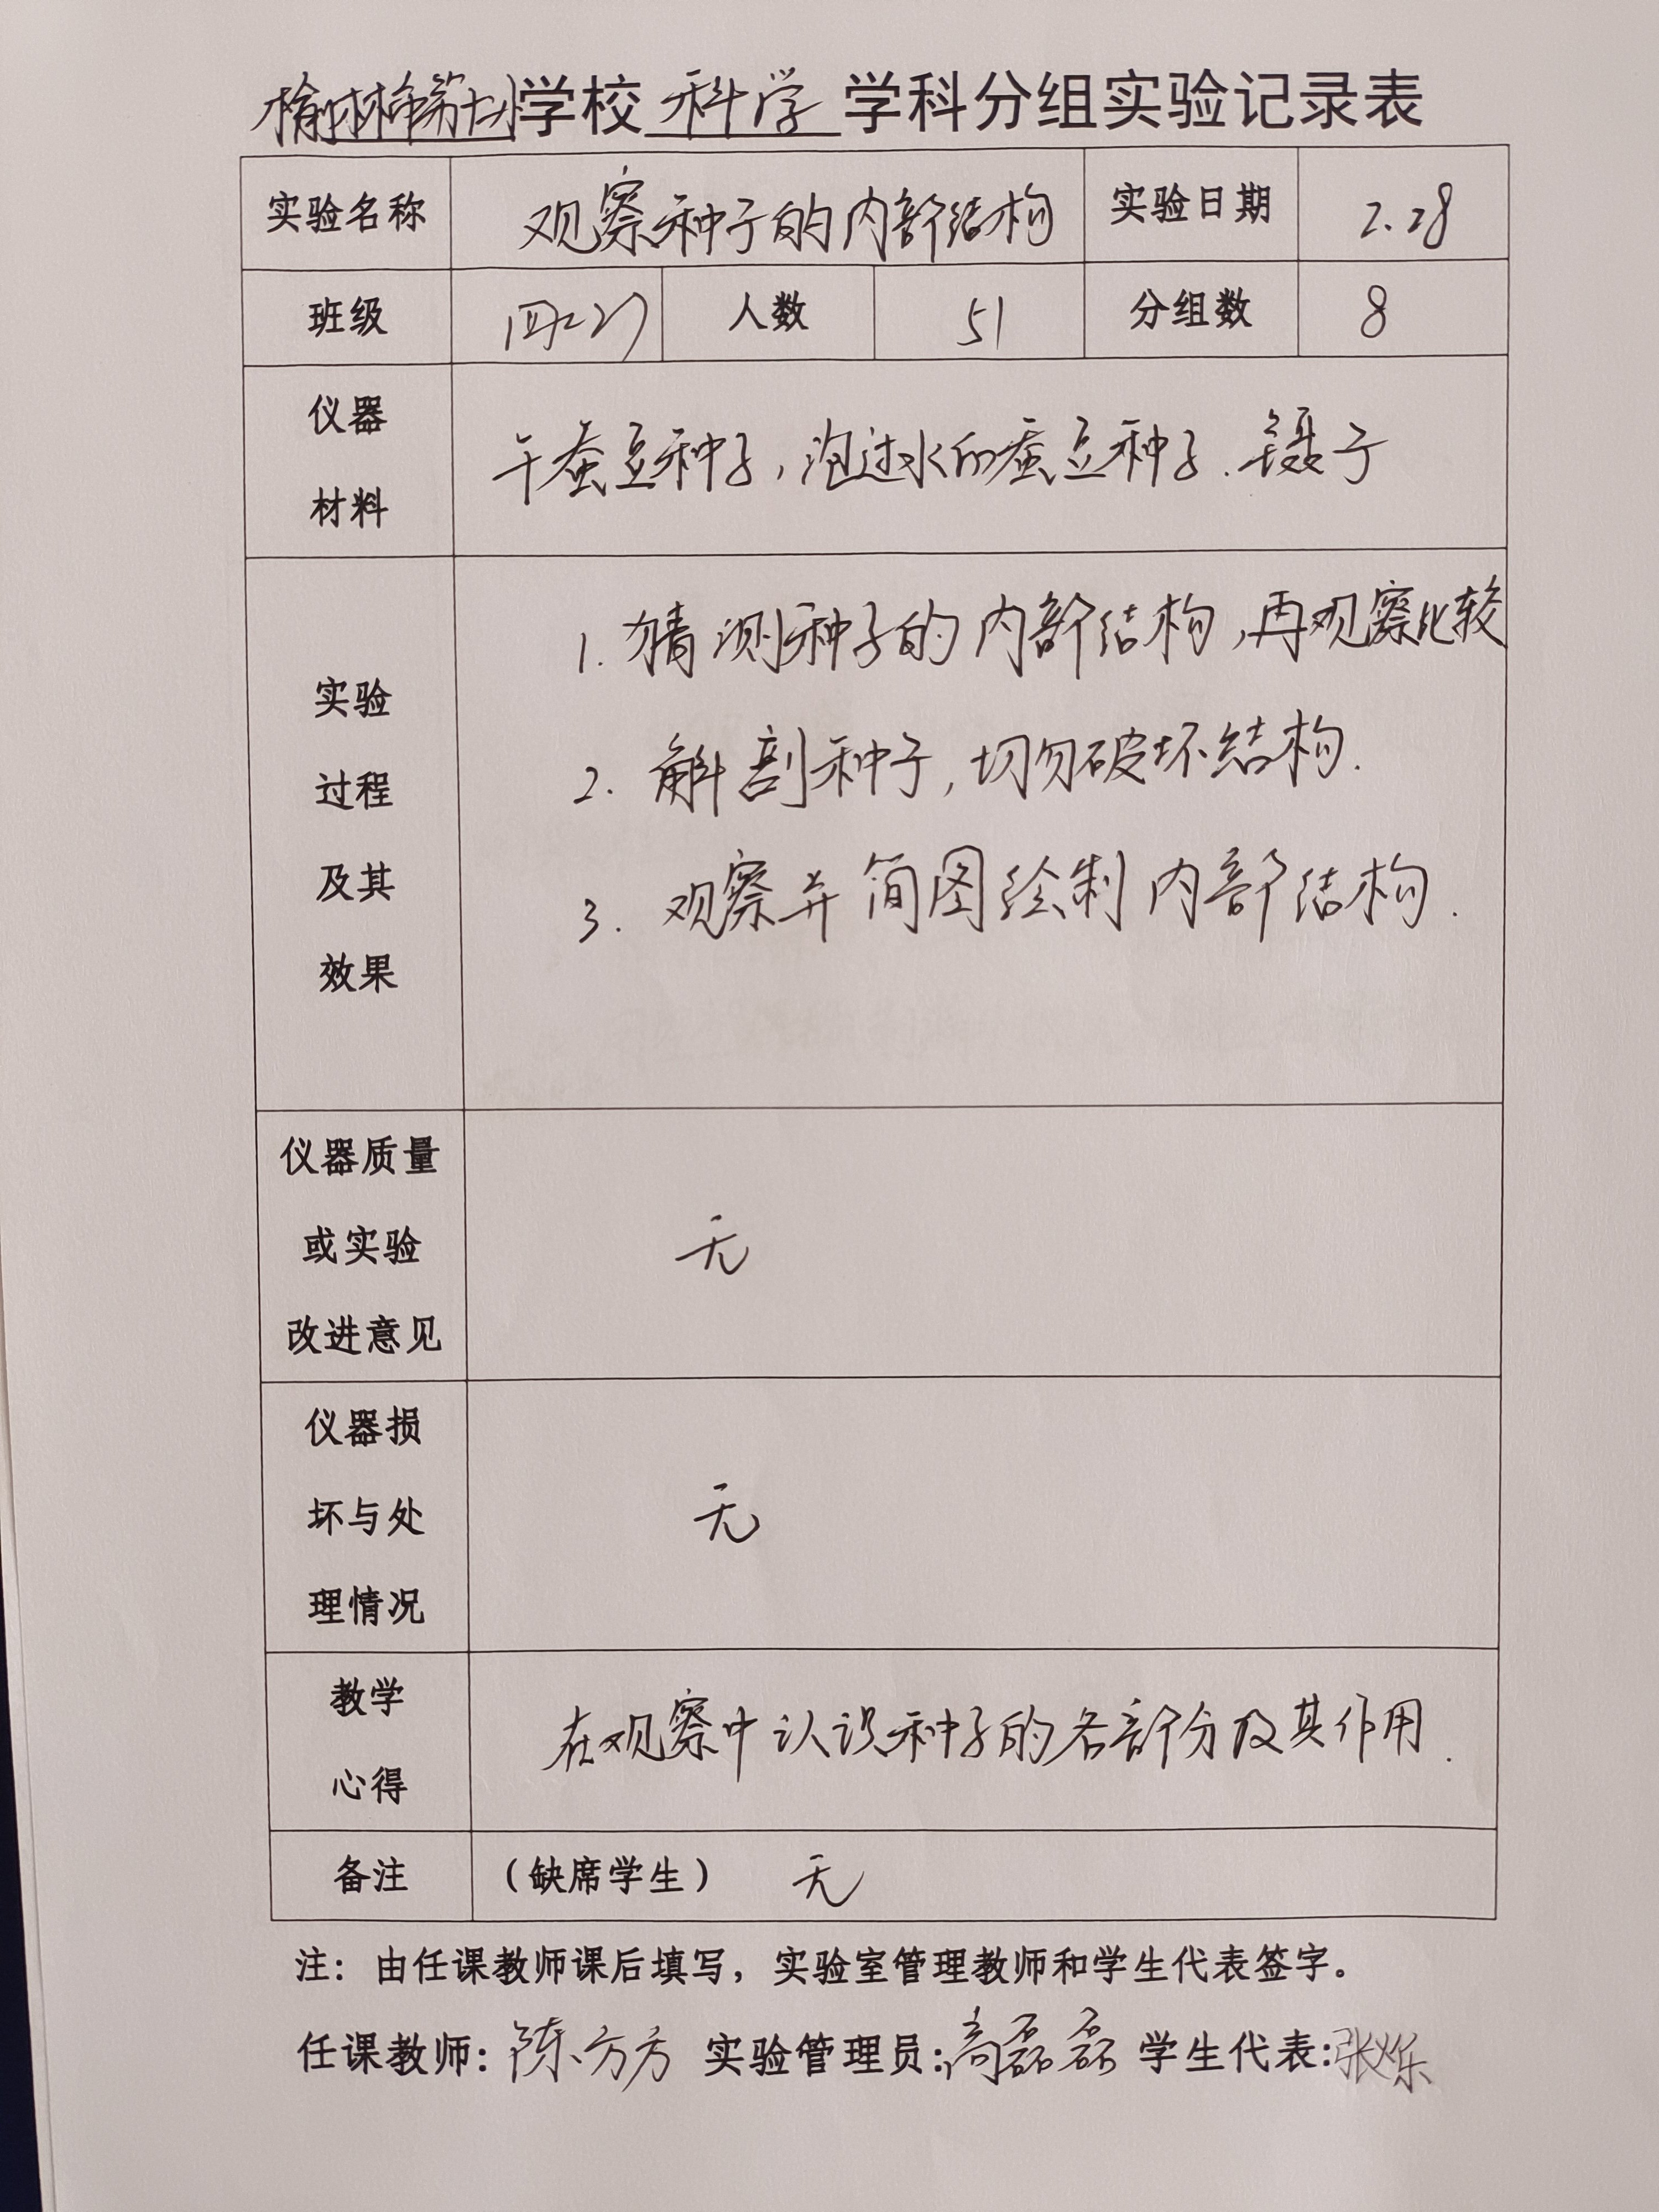 榆林市第十小学校 科学 学科分组实验记录表
实验名称 观察种子的内部结构 实验日期 2.28
班级 四(2) 人数 51 分组数 8
仪器
材料
干蚕豆种子，泡过水的蚕豆种子.镊子
实验
过程
及其
效果
1. 猜测种子的内部结构，再观察比较
2. 解剖种子，切勿破坏结构.
3. 观察并简图绘制内部结构.
仪器质量
或实验
改进意见
无
仪器损
坏与处
理情况
无
教学
心得
在观察中认识种子的各部分及其作用.
备注 （缺席学生） 无
注：由任课教师课后填写，实验室管理教师和学生代表签字。
任课教师：陈方方 实验管理员：高磊磊 学生代表：张烁